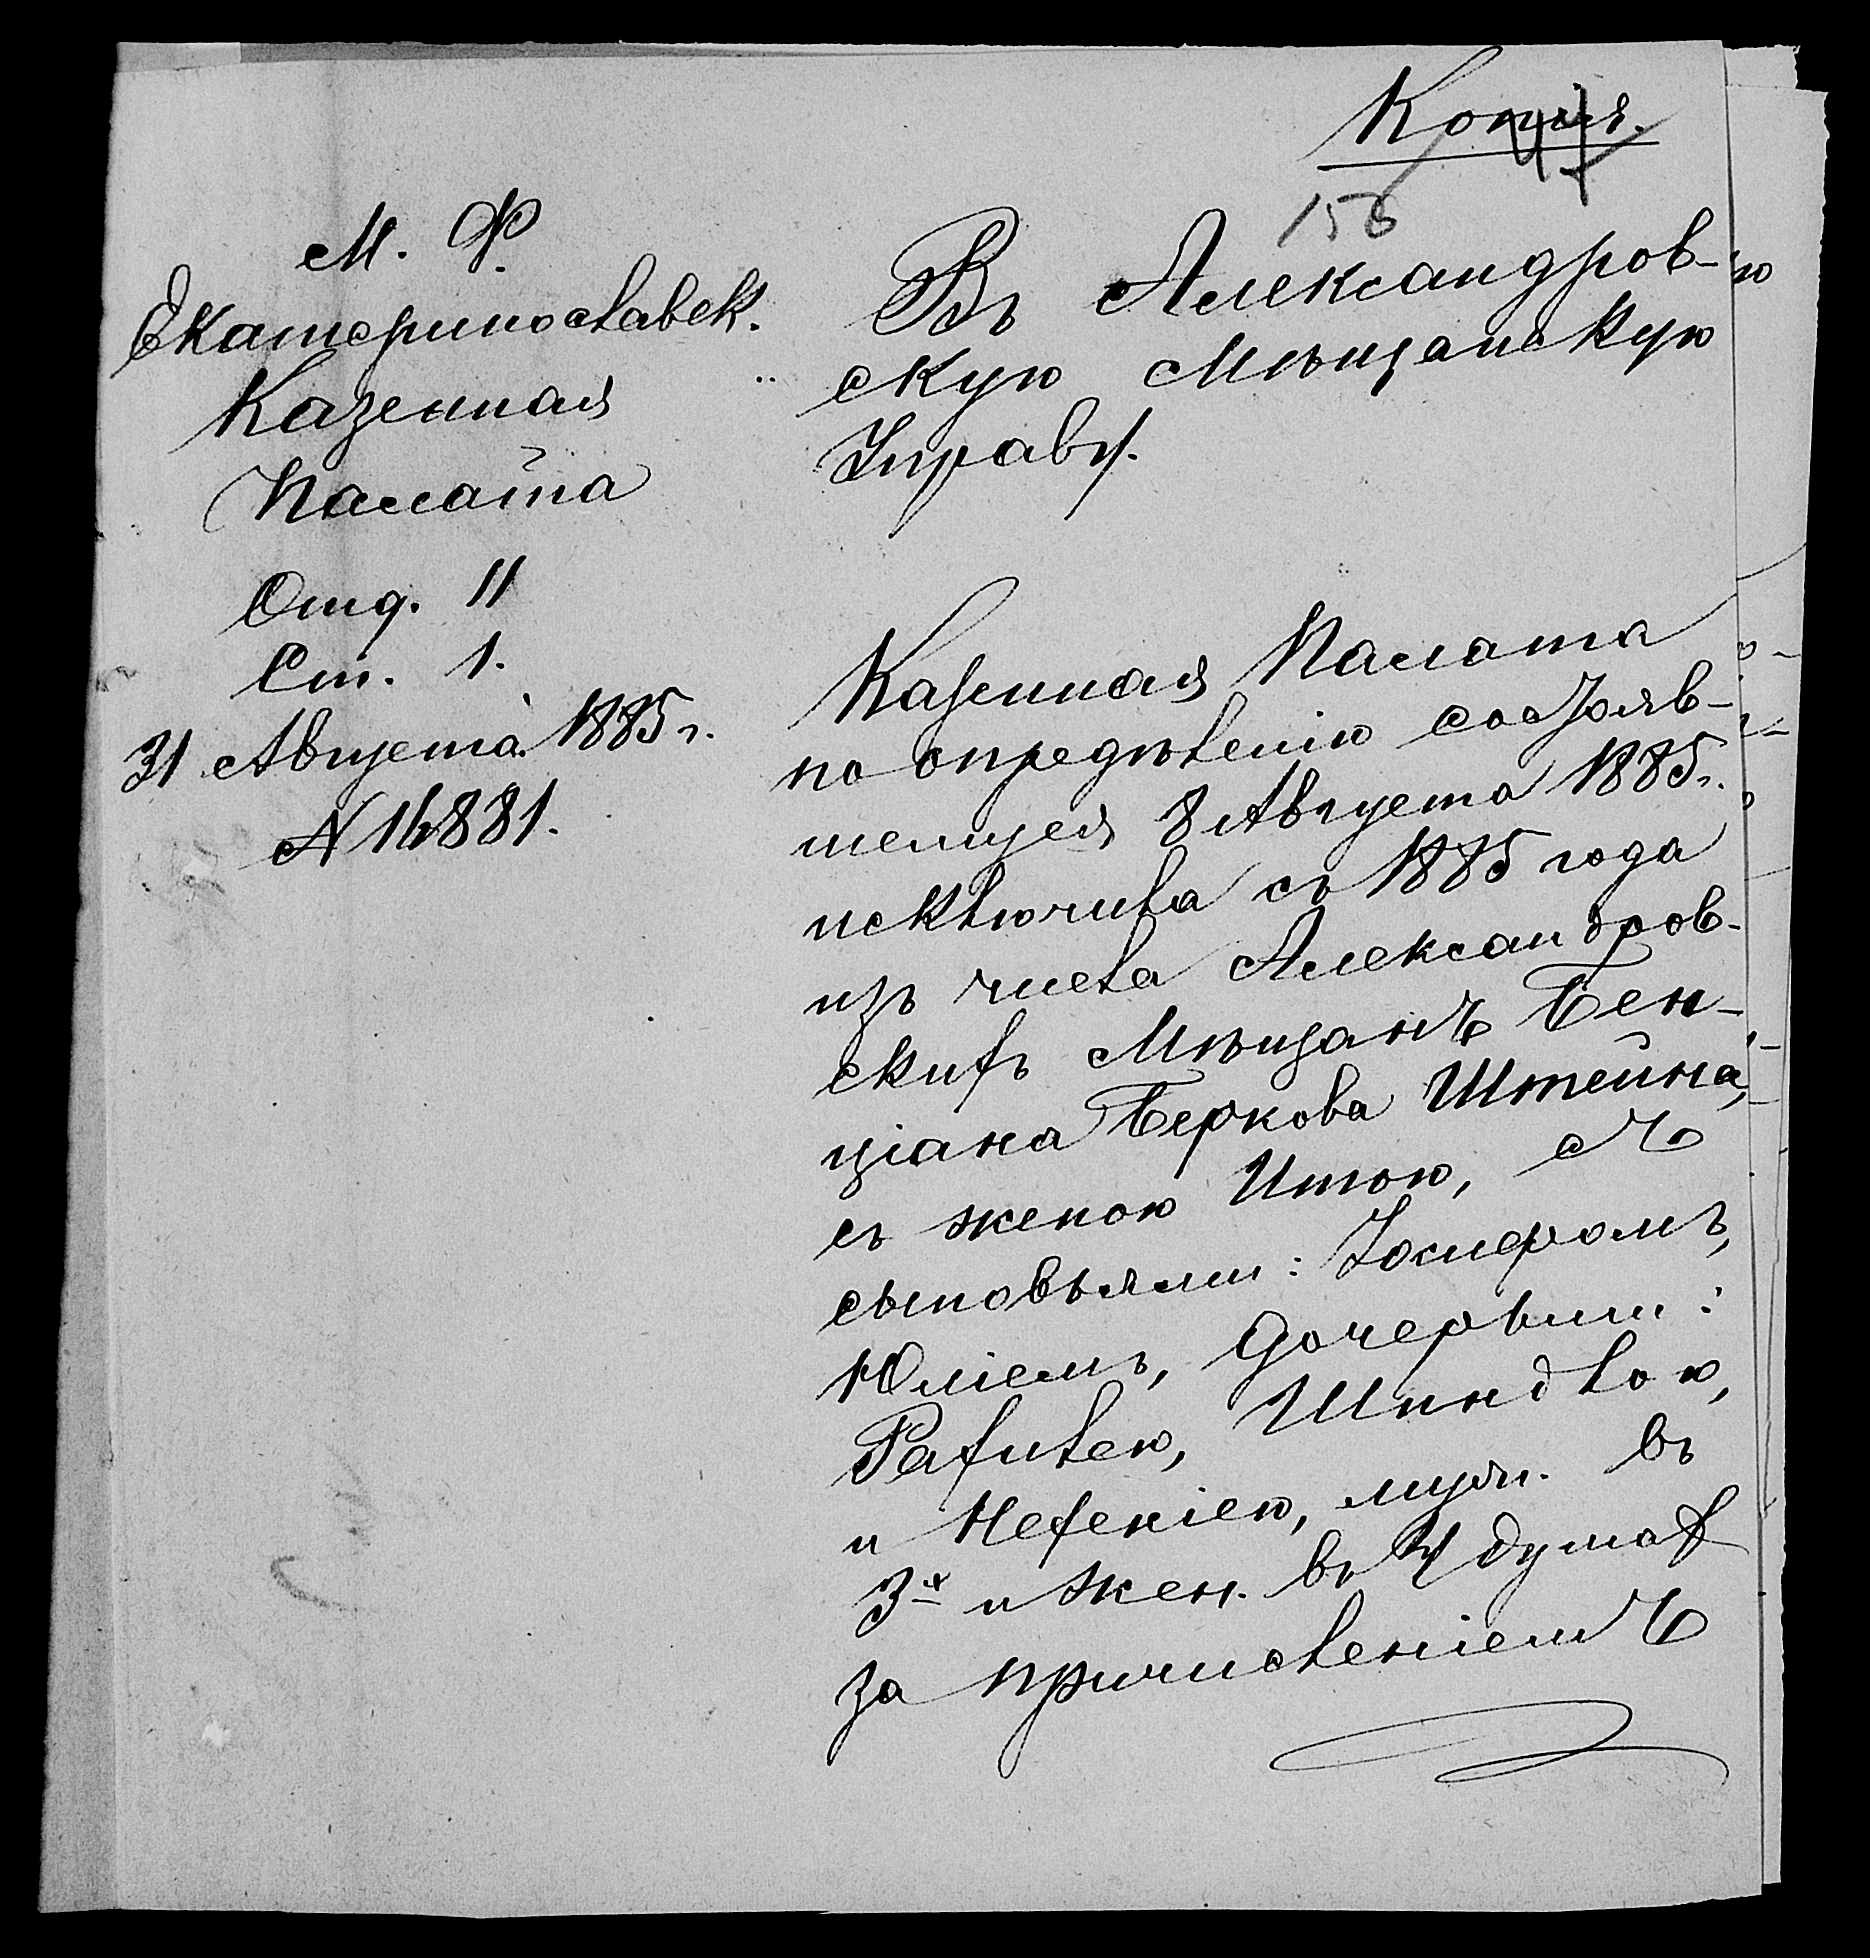 Копія.
47
156
М. Ф.
Екатеринославск.
Казенная
Палата
Отд. II
Ст. 1.
31 Августа 1885 г.
N 16881.
Въ Александров-
скую Мѣщанскую
Управу.
Казенная Палата
по опредѣленію состояв-
шемуся 8 Августа 1885 г.
исключила съ 1885 года
изъ числа Александров-
скихъ Мѣщанъ Бен-
ціана Беркова Штейна,
съ женою Итою, съ
сыновьями: Іосифомъ,
Юліемъ, дочерьми:
Рахилею, Шиндлою,
и Нехеніею, муж. въ
3х и жен. въ 4 душах
за причисленіемъ